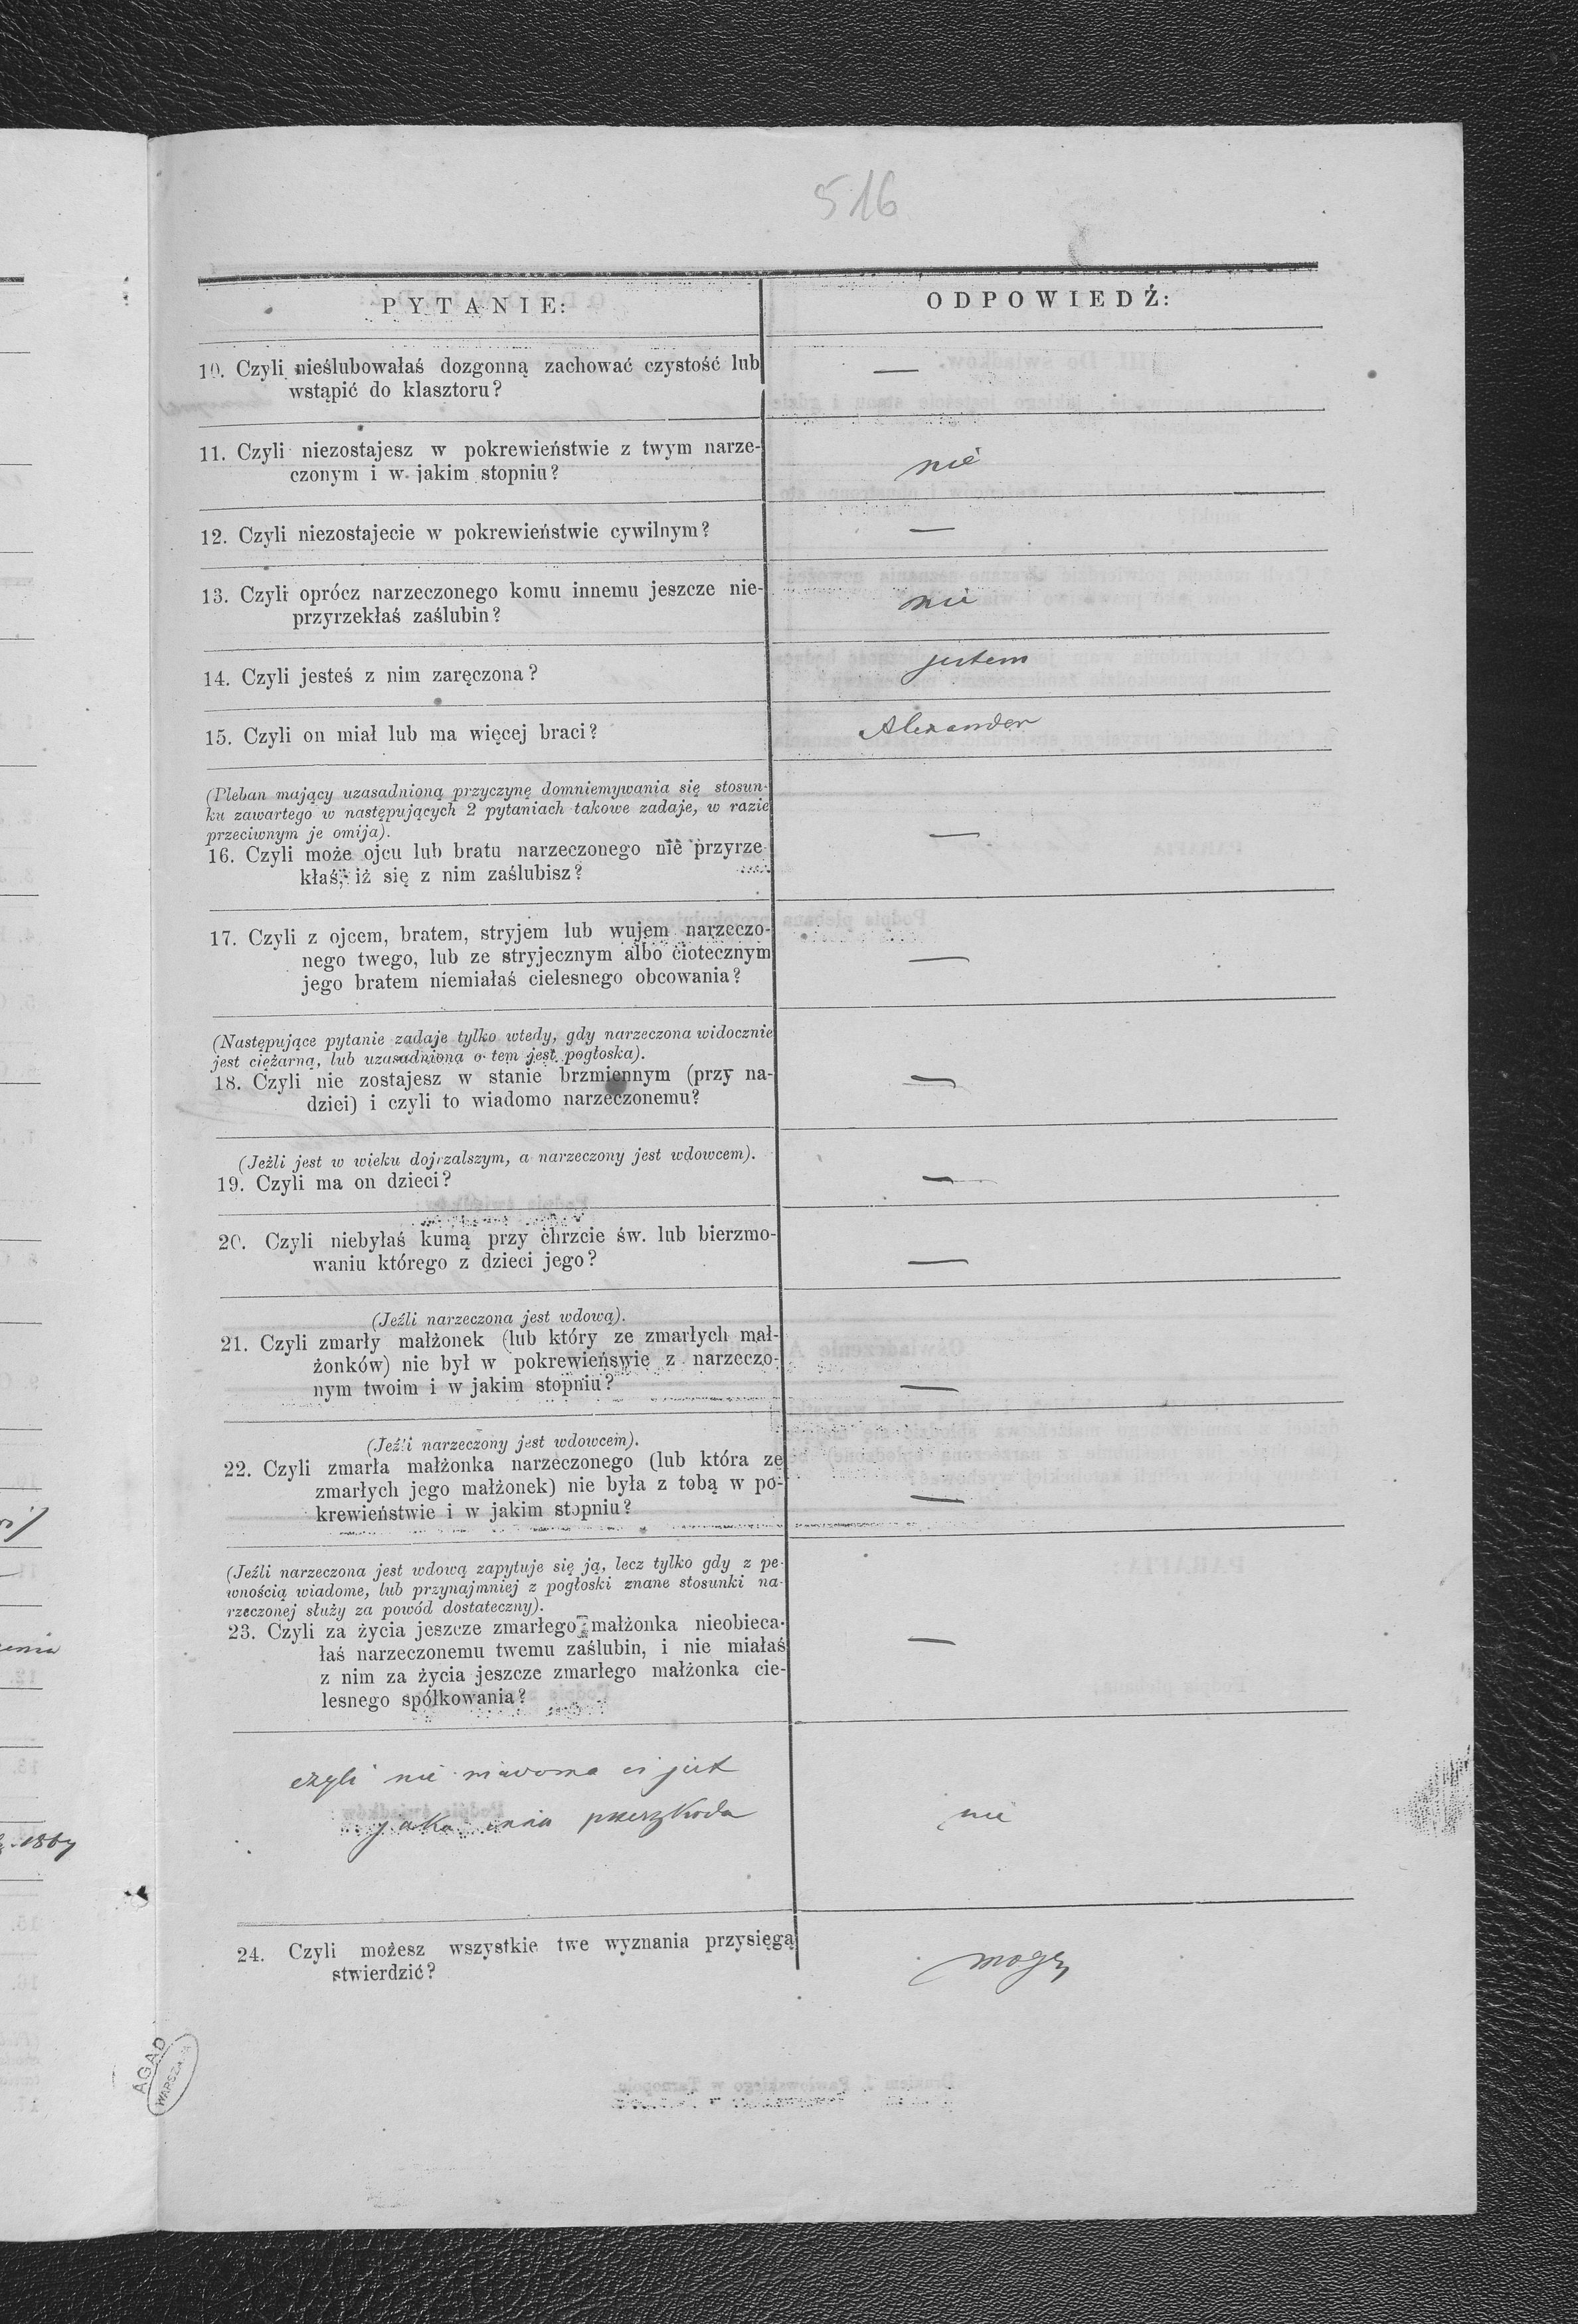 516
PYTANIE:
ODPOWIEDŹ:
10. Czyli nieślubowałaś dozgonną zachować czystość lub
wstąpić do klasztoru?
—
11. Czyli niezostajesz w pokrewieństwie z twym narze-
czonym i w jakim stopniu?
nie
12. Czyli niezostajecie w pokrewieństwie cywilnym?
—
13. Czyli oprócz narzeczonego komu innemu jeszcze nie-
przyrzekłaś zaślubin?
nie
14. Czyli jesteś z nim zaręczona?
jestem
15. Czyli on miał lub ma więcej braci?
Alexander
(Pleban mający uzasadnioną przyczynę domniemywania się stosun-
ku zawartego w następujących 2 pytaniach takowe zadaje, w razie
przeciwnym je omija).
16. Czyli może ojcu lub bratu narzeczonego nie przyrze-
kłaś, iż się z nim zaślubisz?
—
17. Czyli z ojcem, bratem, stryjem lub wujem narzeczo-
nego twego, lub ze stryjecznym albo ciotecznym
jego bratem niemiałaś cielesnego obcowania?
—
(Następujące pytanie zadaje tylko wtedy, gdy narzeczona widocznie
jest ciężarną, lub uzasadniona o tem jest pogłoska).
18. Czyli nie zostajesz w stanie brzmiennym (przy na-
dziei) i czyli to wiadomo narzeczonemu?
—
(Jeżli jest w wieku dojrzalszym, a narzeczony jest wdowcem).
19. Czyli ma on dzieci?
—
20. Czyli niebyłaś kumą przy chrzcie św. lub bierzmo-
waniu którego z dzieci jego?
—
(Jeźli narzeczona jest wdową).
21. Czyli zmarły małżonek (lub który ze zmarłych mał-
żonków) nie był w pokrewieńswie z narzeczo-
nym twoim i w jakim stopniu?
—
(Jeźli narzeczony jest wdowcem).
22. Czyli zmarła małżonka narzeczonego (lub która ze
zmarłych jego małżonek) nie była z tobą w po-
krewieństwie i w jakim stopniu?
—
(Jeźli narzeczona jest wdową zapytuje się ją, lecz tylko gdy z pe-
wnością wiadome, lub przynajmniej z pogłoski znane stosunki na-
rzeczonej służy za powód dostateczny).
23. Czyli za życia jeszcze zmarłego małżonka nieobieca-
łaś narzeczonemu twemu zaślubin, i nie miałaś
z nim za życia jeszcze zmarłego małżonka cie-
lesnego spółkowania?
—
czyli nie ci jest
jaka inna przeszkoda
nie
24. Czyli możesz wszystkie twe wyznania przysięgą
stwierdzić?
mogę
AGAD
WARSZAWA
1867